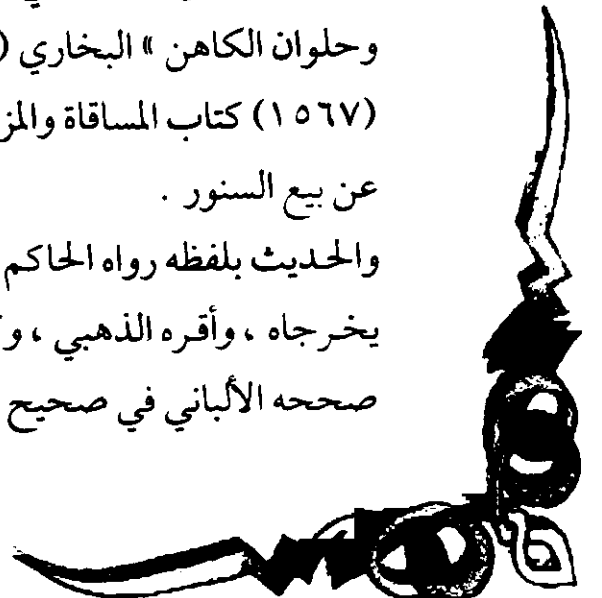 وحلوان الكاهن » البخاري (
(١٥٦٧) كتاب المساقاة والمز
عن بيع السنور .
والحديث بلفظه رواه الحاكم
يخرجاه ، وأقره الذهبي ، و
صححه الألباني في صحيح